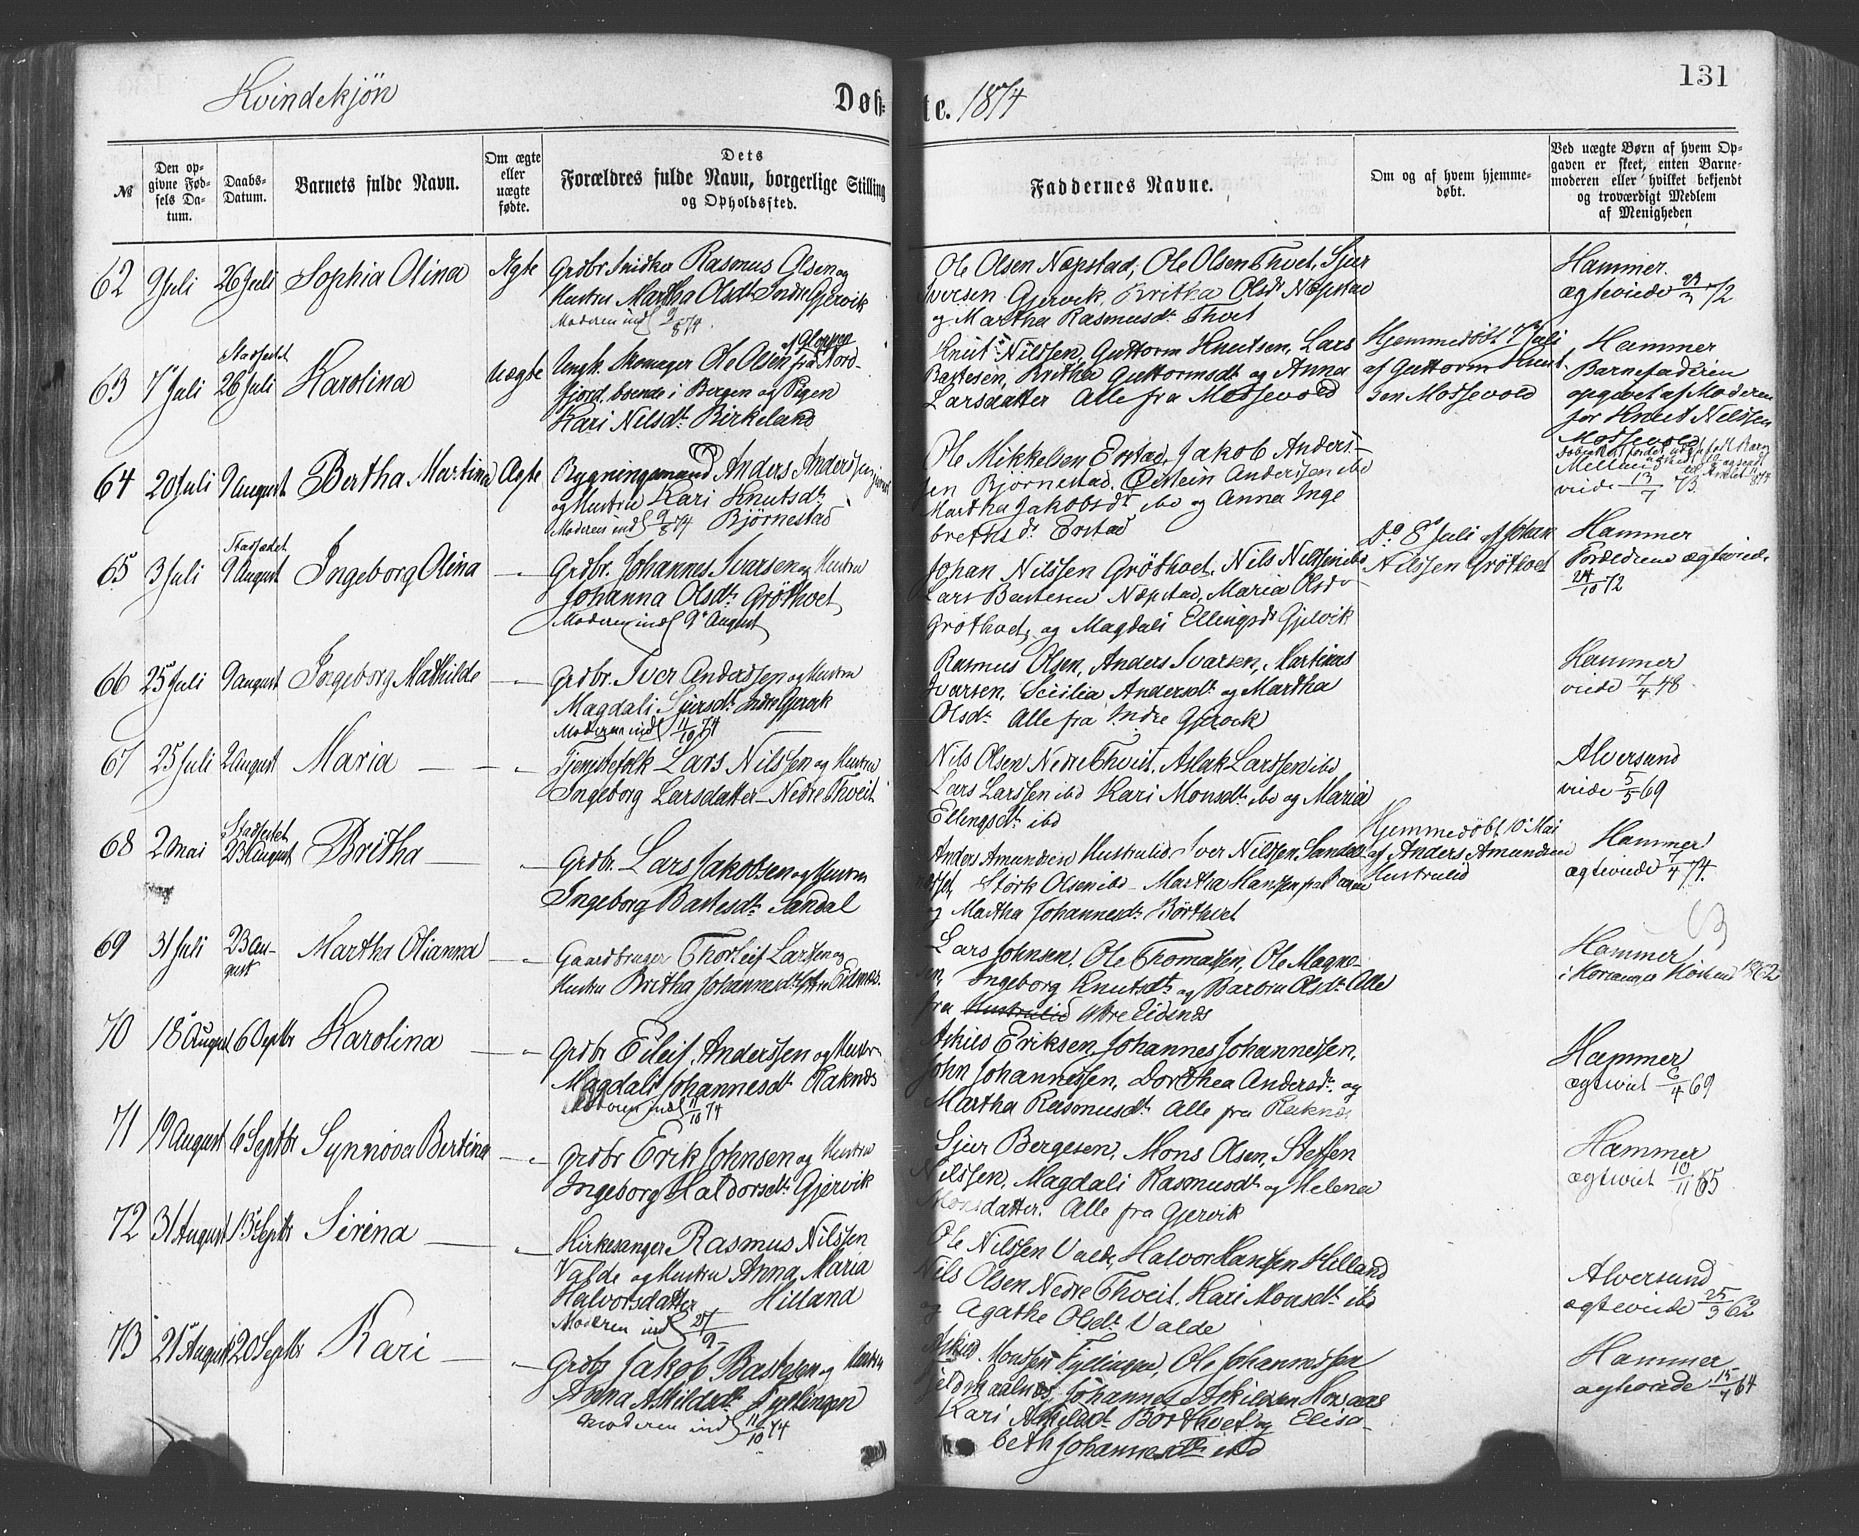 131
Kvindekjön Døb- te. 1874
№
Den opgivne Fødsels Datum.
Daabs-Datum.
Barnets fulde Navn.
Om ægte eller uægte fødte.
Dets Forældres fulde Navn, borgerlige Stilling og Opholdssted.
Faddernes Navne.
Om og af hvem hjemmedøbt.
Ved uægte Børn af hvem Opgaven er skeet, enten Barnemoderen eller hvilket bekjendt og troværdigt Medlem af Menigheden
62 9 Juli 26 Juli Sophia Olina Ægte
Grdbr Snidker Rasmus Olsen og
Hustru Martha Olsdtr Indre Gjervik
Moderen indl 9/8 74.
Ole Olsen Næpstad, Ole Olsen Thvet, Sjur
Iversen Gjervik, Britha Olsdr Næpstad
og Martha Rasmusdtr Thvet
Hammer.
ægteviede 29/3 72
63 7 Juli Stadfestet 26 Juli Karolina Uægte
Ungk. Skomager Ole Olsen fra Nord-
fjord, boende i Bergen og Pigen
Kari Nilsdtr Birkeland
Knut Nilssen, Guttorm Knutsen, Lars
Bastesen, Britha Guttormsdt og Anna
Larsdatter Alle fra Mossevold
Hjemmedöbt 7 Juli
af Guttorm Knut-
sen Mossevold
Hammer
Barnefaderen
opgivet af Moderen
for Knut Nilssen
Mossevold
64 20 Juli 9 August Bertha Martina Ægte
Bygningsmand Anders Anderssen
og Hustru Kari Knutsdtr
Moderen indl 9/8 74 Bjørnestad
Ole Mikkelsen Erstad, Jakob Anders-
sen Bjørnestad, Oistein Anderssen ibd
Martha Jakobsdt ibd og Anna Inge
brethsdr Erstad
viede 13/7 73.
65 3 Juli Stadfæstet 9 August Ingeborg Olina — „
Grdbr. Johannes Ivarsen og Hustru
Johanna Olsdtr Gröthvet
Moderen indl 9 August
Johan Nilssen Gröthvet, Nils Nilssen ibd
Lars Bastesen Næpstad, Maria Olsdr
Gröthvet, og Magdali Ellingsdt Gjervik
Do 8 Juli af Johan
Nilssen Gröthvet
Hammer
Forældrene ægteviede
24/10 72
66 25 Juli 9 August Ingeborg Mathilde — „
Grdbr. Iver Anderssen og Hustru
Magdali Sjursdtr Indre Gjervik
Moderen indl 11/10 74
Rasmus Olsen, Anders Ivarsen, Martinus
Ivarsen, Scicilia Andersdt og Martha
Olsdtr Alle fra Indre Gjervik
Hammer
viede 7/4 48.
67 25 Juli 2 August Maria — — „
Tjenstefolk Lars Nilssen og Hustru
Ingeborg Larsdatter – Nedre Thveit
Nils Olsen Nedre Thveit, Aslak Larssen ibd
Lars Larssen ibd Kari Monsdtr ibd og Maria
Ellingsdtr ibd
Alversund
viede 5/5 69
68 2 Mai Stadfestet 23 August Britha — „
Grdbr. Lars Jakobsen og Hustru
Ingeborg Bastesdtr Sandal
Anders Amundsen Hustrulid Iver Nilssen Sandal
Störk Olsen ibd – Martha Hanssen
og Martha Johannesdtr Börthvet
Hjemmedöbt 10 Mai
af Anders Amundsen
Hustrulid
Hammer
ægteviede 7/4 74.
69 31 Juli 23 August Martha Olianna — „
Gaardbruger Thorleif Larssen og
Hustru Britha Johannesdtr Ytre Eidsnæs.
Lars Johnsen, Ole Thomassen, Ole Magne-
sen, Ingeborg Knutsdtr og Barbra Olsdtr Alle
fra Hustrulid Ytre Eidsnæs
Hammer
1862
70 18 August 6 Septbr Karolina — „
Grdbr Eileif Anderssen og Hustru
Magdali Johannesdtr Raknæs
Moderen indl 11/10 74
Askild Eriksen, Johannes Johannessen,
John Johannessen, Dorthea Andersdtr og
Martha Rasmusdtr Alle fra Raknæs
Hammer
ægteviet 6/4 69
71 19 August 6 Septbr Synnöva Bertina — „
Grdbr Erik Johnsen og Hustru
Ingeborg Haldorsdtr Gjervik
Sjur Bergesen, Mons Olsen, Steffen
Nilssen, Magdali Rasmusdt og Helena
Monsdatter. Alle fra Gjervik
Hammer
ægteviet 10/11 65
72 31 August 13 Septbr Sirena — „
Kirkesanger Rasmus Nilssen
Valde og Hustru Anna Maria
Halvorsdatter Hilland
Moderen indl 27/9
Ole Nilssen Valde, Halvor Hanssen Hilland
Nils Olsen Nedre Thveit, Kari Monsdtr ibd
og Agathe Olsdtr Valde
Alversund
ægteviede 25/3 62
73 21 August 20 Septbr Kari — „
Grdbr Jakob Bastesen og Hustru
Anna Askildsdtr Fyllingen
Moderen indl 11/10 74
Askild Monssen Fyllingen, Ole Johannessen
Johannes Askildsen
Kari Askildsdt Börthvet og Elisa-
beth Johannesdtr ibd
Hammer
ægteviede 15/4 64